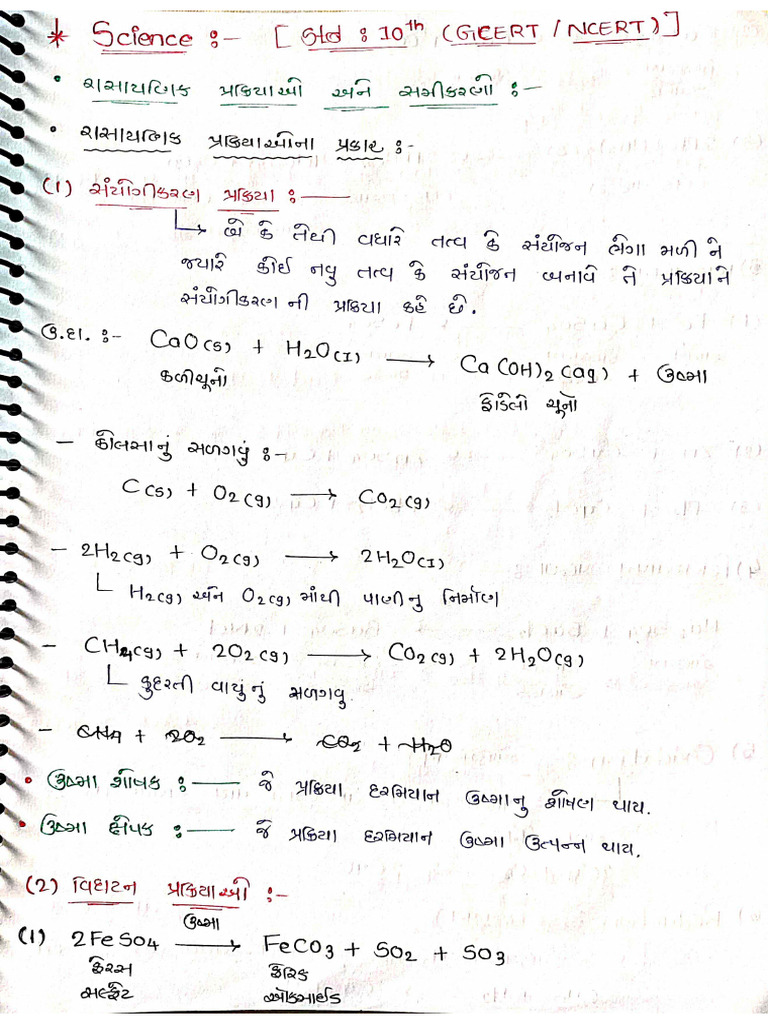 * Science :- [ Std : 10th (GCERT / NCERT)]
• રાસાયણિક પ્રક્રિયાઓ અને સમીકરણો :-
• રાસાયણિક પ્રક્રિયાઓના પ્રકાર :-
(1) સંયોગીકરણ પ્રક્રિયા :-
બે કે તેથી વધારે તત્વ કે સંયોજન ભેગા મળી ને
જ્યારે કોઈ નવુ તત્વ કે સંયોજન બનાવે તે પ્રક્રિયાને
સંયોગીકરણ ની પ્રક્રિયા કહે છે.
ઉ.દા. :- CaO(s) + H2O(l) → Ca(OH)2(aq) + ઉષ્મા
કળીચૂનો ફોડેલો ચૂનો
- કોલસાનું સળગવું :-
C(s) + O2(g) → CO2(g)
- 2H2(g) + O2(g) → 2H2O(l)
H2(g) અને O2(g) માંથી પાણીનુ નિર્માણ
- CH4(g) + 2O2(g) → CO2(g) + 2H2O(g)
કુદરતી વાયુંનું સળગવુ.
- CH4 + 2O2 → CO2 + H2O
• ઉષ્મા શોષક :- જે પ્રક્રિયા દરમિયાન ઉષ્માનુ શોષણ થાય.
• ઉષ્મા ક્ષેપક :- જે પ્રક્રિયા દરમિયાન ઉષ્મા ઉત્પન્ન થાય.
(2) વિઘટન પ્રક્રિયાઓ :-
ઉષ્મા
(1) 2FeSO4 → FeCO3 + SO2 + SO3
ફેરસ ફેરિક
સલ્ફેટ ઓકસાઈડ